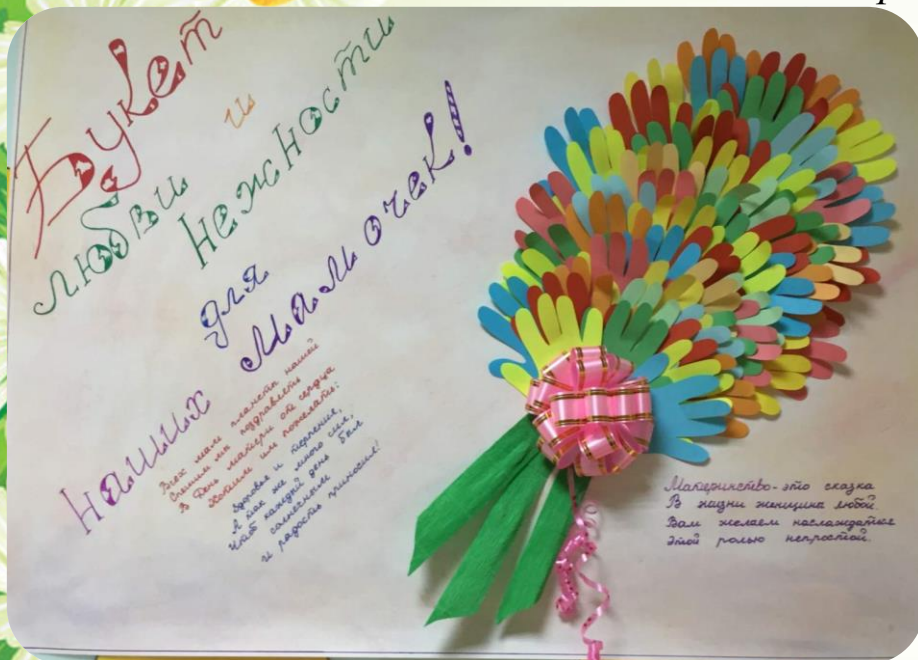 Букет
любви и
нежности
для
наших мамочек!
Всех мам планеты нашей
Спешим мы поздравить
В День матери от сердца
Хотим им пожелать:
Здоровья и терпения,
А так же много сил,
Чтоб каждый день был
солнечным
и радость приносил!
Материнство - это сказка
В жизни женщины любой.
Вам желаем наслаждаться
Этой ролью непростой.